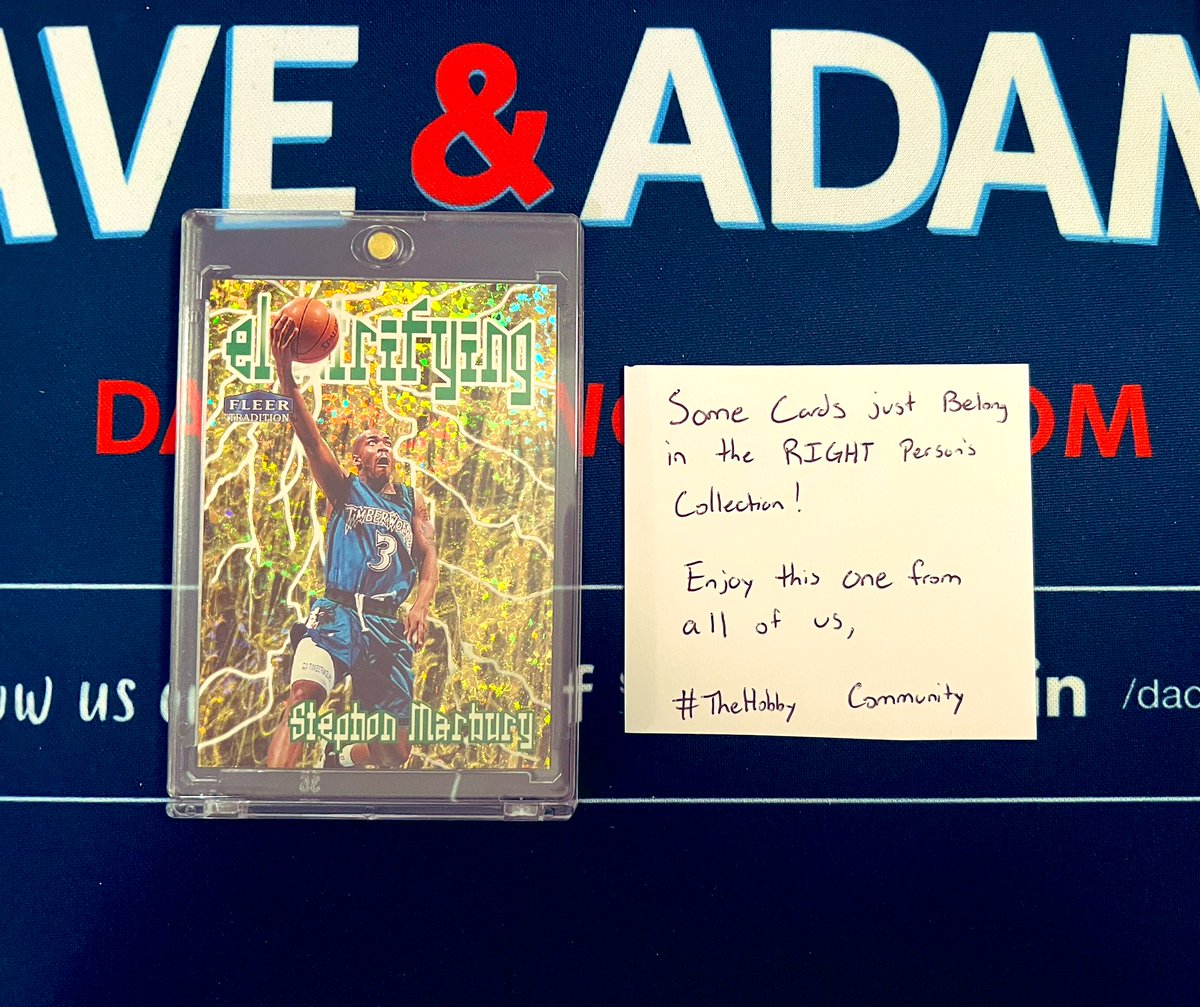 AVE & ADAM
electrifying
FLEER
TRADITION
TIMBERWO
3
Stephon Marbury
Some Cards just Belong
in the RIGHT Person's
Collection!
Enjoy this one from
all of us,
#TheHobby Community
DA
OM
ow us
f
in /dac